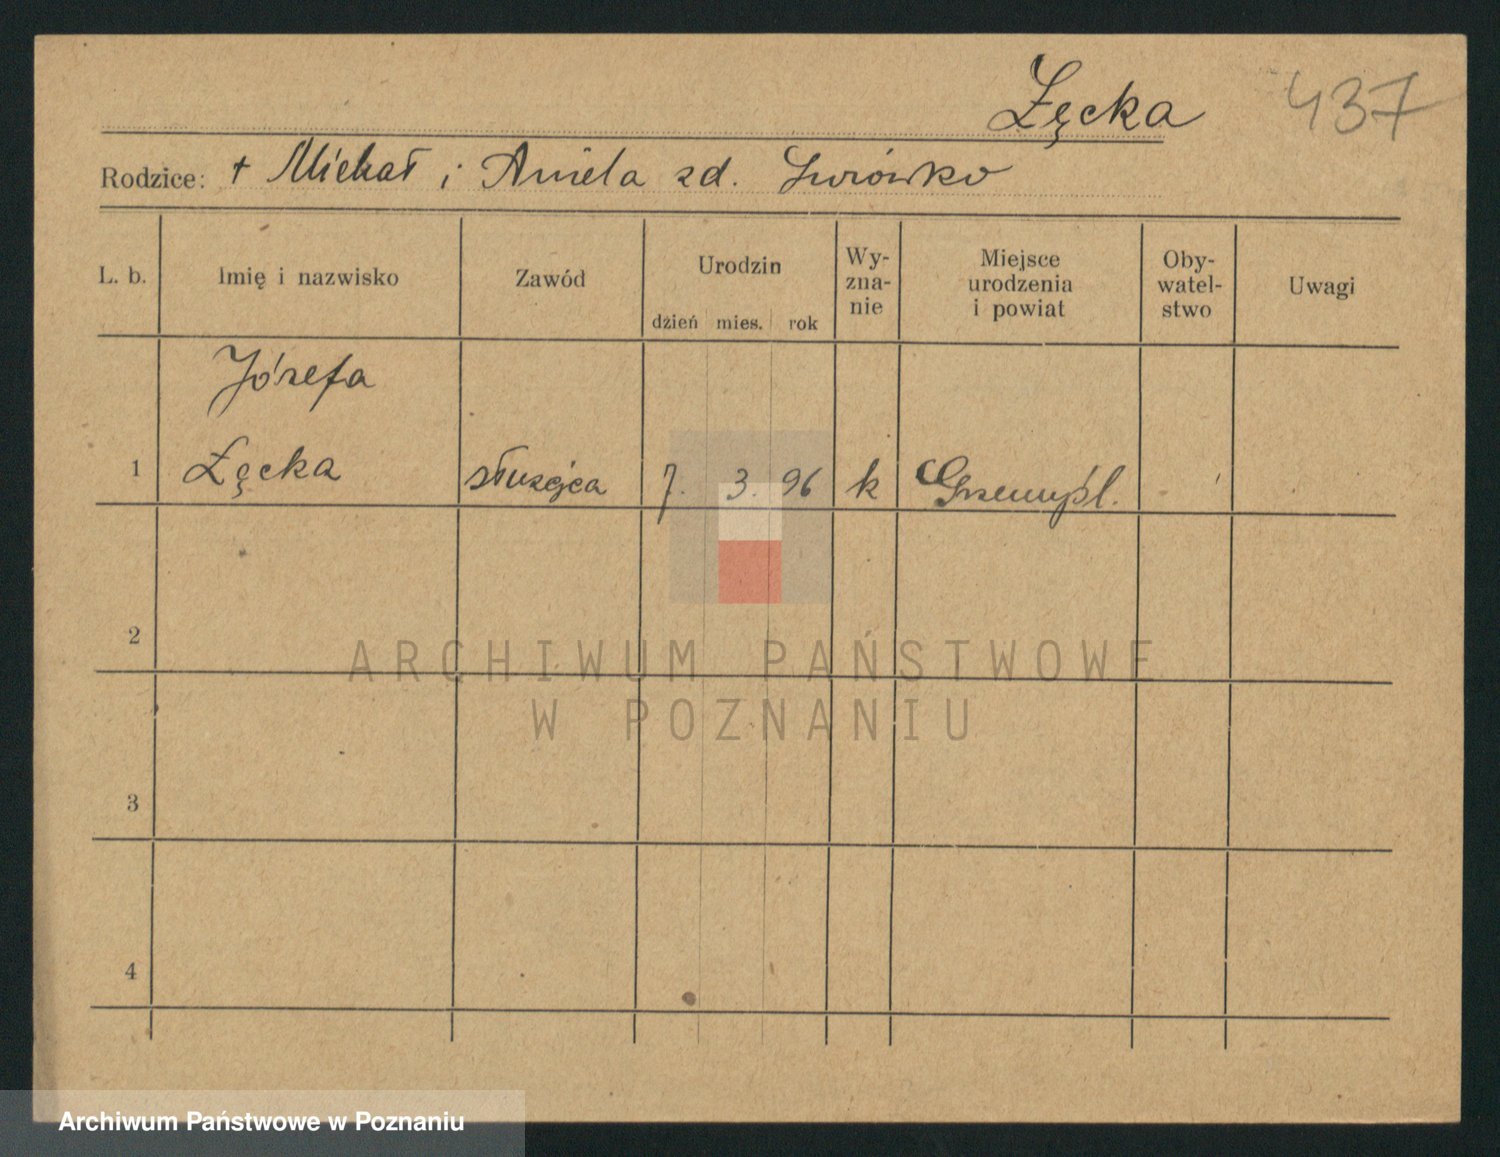 Łęcka 437
Rodzice: + Michał i Aniela zd.
L. b. Imię i nazwisko Zawód Urodzin dzień mies. rok Wy-zna-nie Miejsce urodzenia i powiat Oby-watel-stwo Uwagi
Józefa
1 Łęcka służąca 7. 3. 96 k Przemyśl.
2
ARCHIWUM PAŃSTWOWE
W POZNANIU
3
4
Archiwum Państwowe w Poznaniu